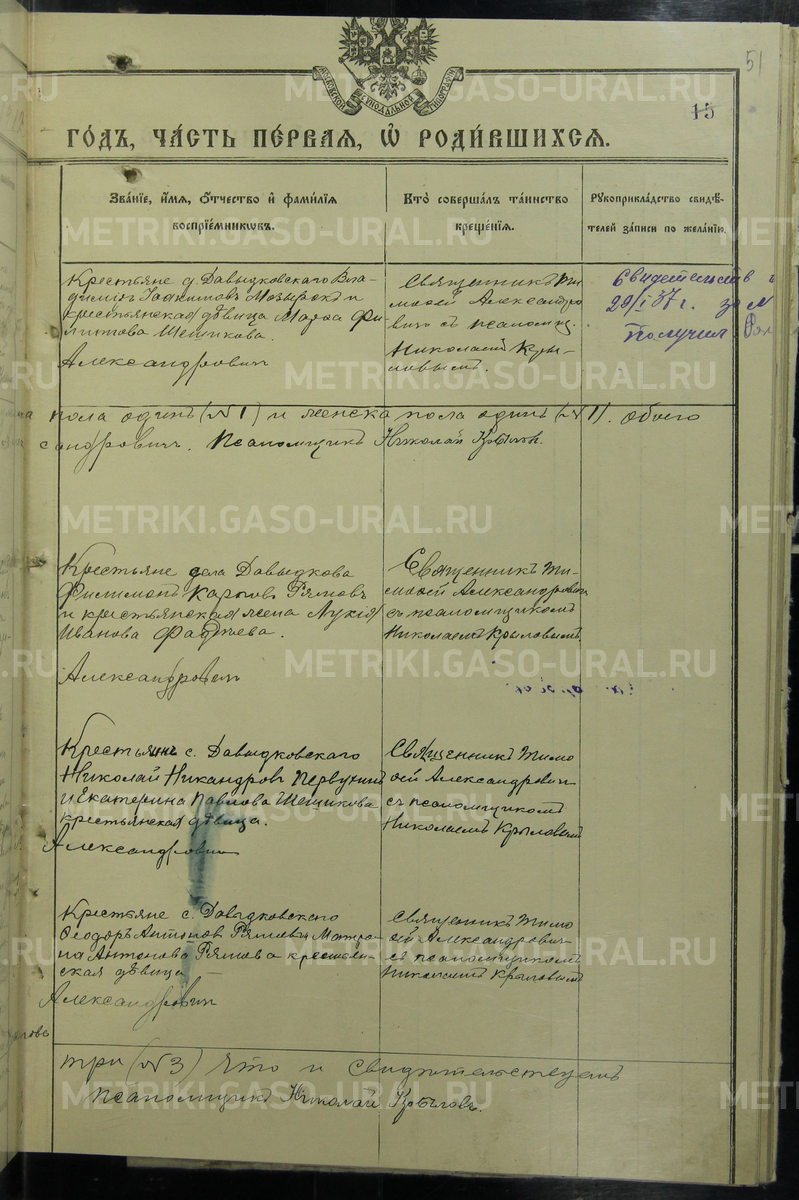 51
15
МОСКОВСКОЙ СѴНОДАЛЬНОЙ ТИПОГРАФІИ
ГО́ДЪ, ЧА́СТЬ ПЕ́РВАЯ, Ѡ РОДИ́ВШИХСЯ.
ЗВА́НІЕ, И́МЯ, О́ТЧЕСТВО И ФАМИ́ЛІЯ ВОСПРІЕ́МНИКѠВЪ.
КТО̀ СОВЕРША́ЛЪ ТА́ИНСТВО КРЕЩЕ́НІЯ.
РУКОПРИКЛА́ДСТВО СВИДѢ́ТЕЛЕЙ ЗА́ПИСИ ПО ЖЕЛА́НІЮ.
Крестьяне д. Давыдковскаго Вла-
димиръ и
крестьянская дѣвица Фи-
липпова Щепикова.
Александрович
Священникъ Ти-
мофей Александро
вичъ съ псаломщ.
Николаемъ Кры-
ловымъ.
Свидетельств
29/I 37 г. за
Получил
пола одинъ (№1) и женска пола одинъ (№1). обоего
сандрович. Псаломщикъ Николай Крыловъ.
Крестьяне села Давыдкова
Филимонъ Карповъ Рямовъ
и крестьянская жена Лукія
Иванова Фаддѣева.
Александрович
Священникъ Ти-
мофей Александрович
съ псаломщикомъ
Николаемъ Крыловымъ
Крестьянинъ с. Давыдковскаго
Николай Никандровъ Первухинъ
и Екатерина Павлова Щепикова
крестьянская дѣвица.
Александрович
Священникъ Тимо
ѳей Александрович
съ псаломщикомъ
Николаемъ Крыловымъ
Крестьяне с. Давыдковскаго
Ѳеодоръ Антоновъ Рямов и Матро-
на Антонова Рямова крестьян-
ская дѣвица
Александрович
Священникъ Тимо
ѳей Александрович
съ псаломщикомъ
Николаемъ Крыловымъ
три (№3) Что и свидѣтельствуемъ
Псаломщикъ Николай Крыловъ.
METRIKI.GASO-URAL.RU